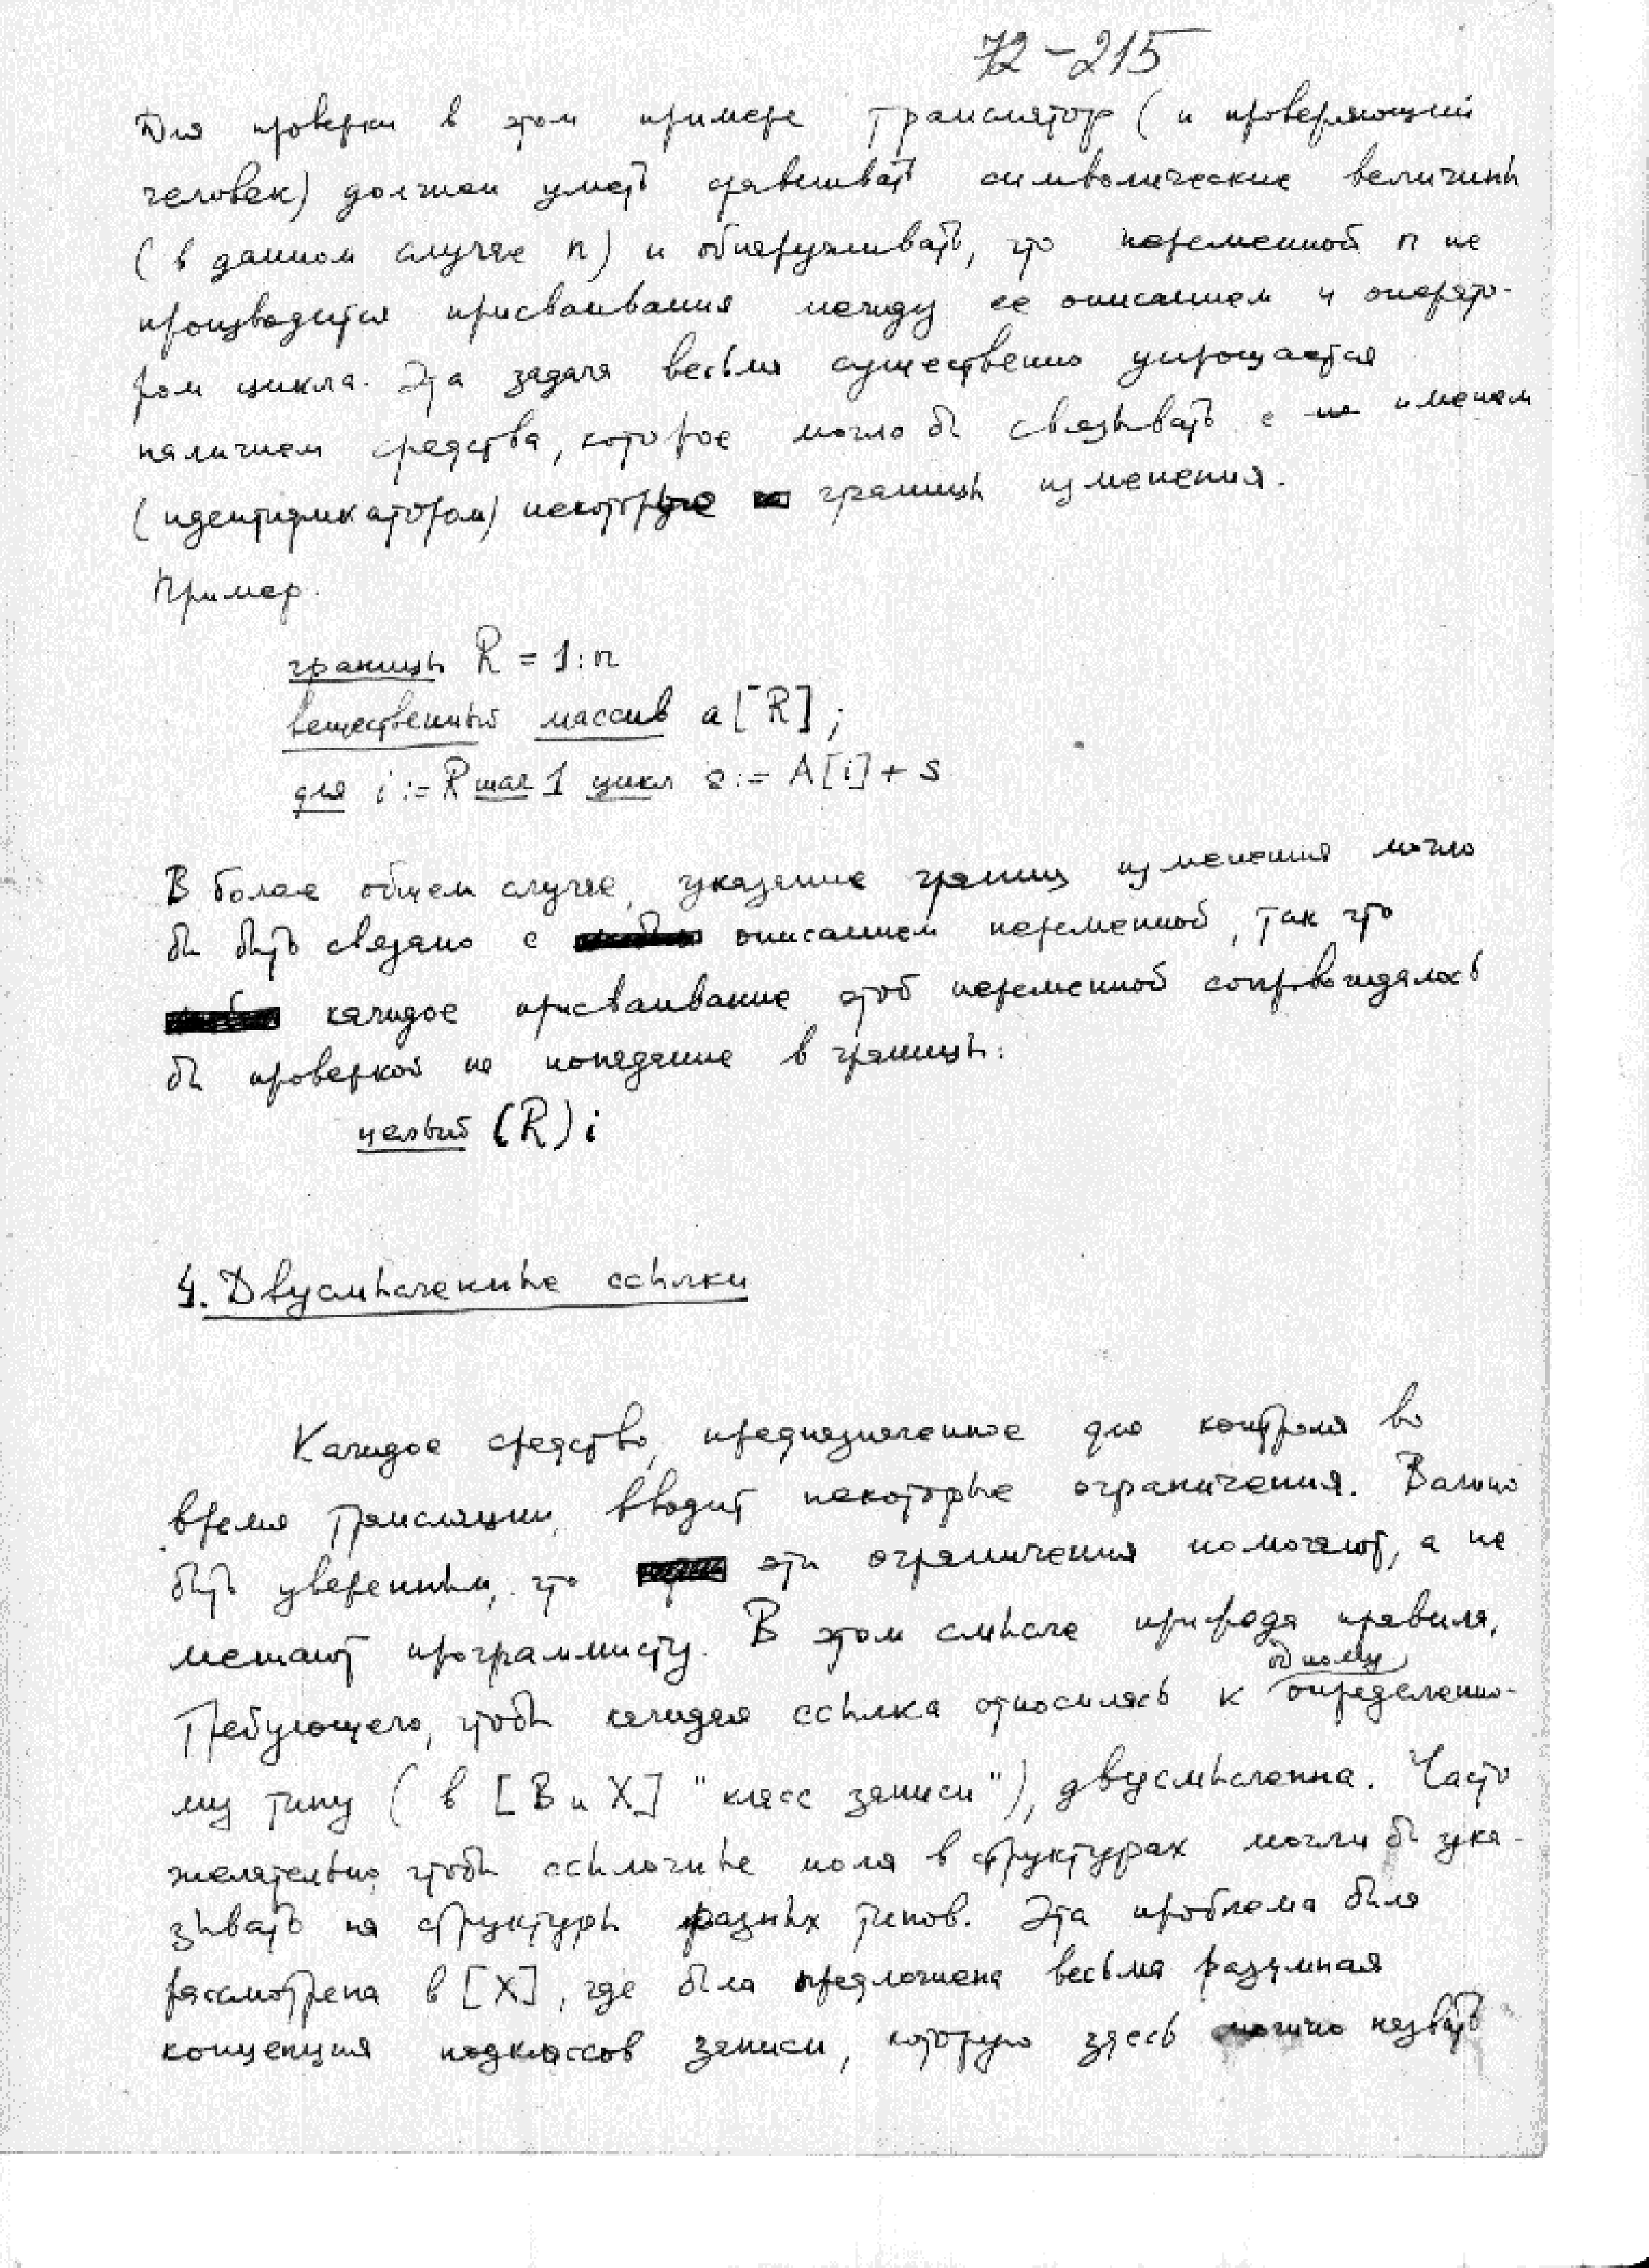 72-215
Для проверки в этом примере транслятор (и проверяющий
человек) должен уметь сравнивать символические величины
(в данном случае n) и обнаруживать, что переменной n не
производится присваивания между ее описанием и операто-
ром цикла. Эта задача весьма существенно упрощается
наличием средства, которое могло бы связывать с именем
(идентификатором) некоторые границы изменения.
Пример.
границы R = 1:n
вещественный массив a[R];
для i := R шаг 1 цикл s := A[i] + s
В более общем случае, указание границ изменения могло
бы быть связано с описанием переменной, так что
каждое присваивание этой переменной сопровождалось
бы проверкой на попадание в границы:
целый (R) i
4. Двусмысленные ссылки
Каждое средство, предназначенное для контроля во
время трансляции, вводит некоторые ограничения. Важно
быть уверенным, что эти ограничения помогают, а не
мешают программисту. В этом смысле природа правила,
требующего, чтобы каждая ссылка относилась к одному определенно-
му типу (в [В и Х] "класс записи"), двусмысленна. Часто
желательно, чтобы ссылочные поля в структурах могли бы ука-
зывать на структуры разных типов. Эта проблема была
рассмотрена в [Х], где была предложена весьма разумная
концепция подклассов записи, которую здесь можно назвать